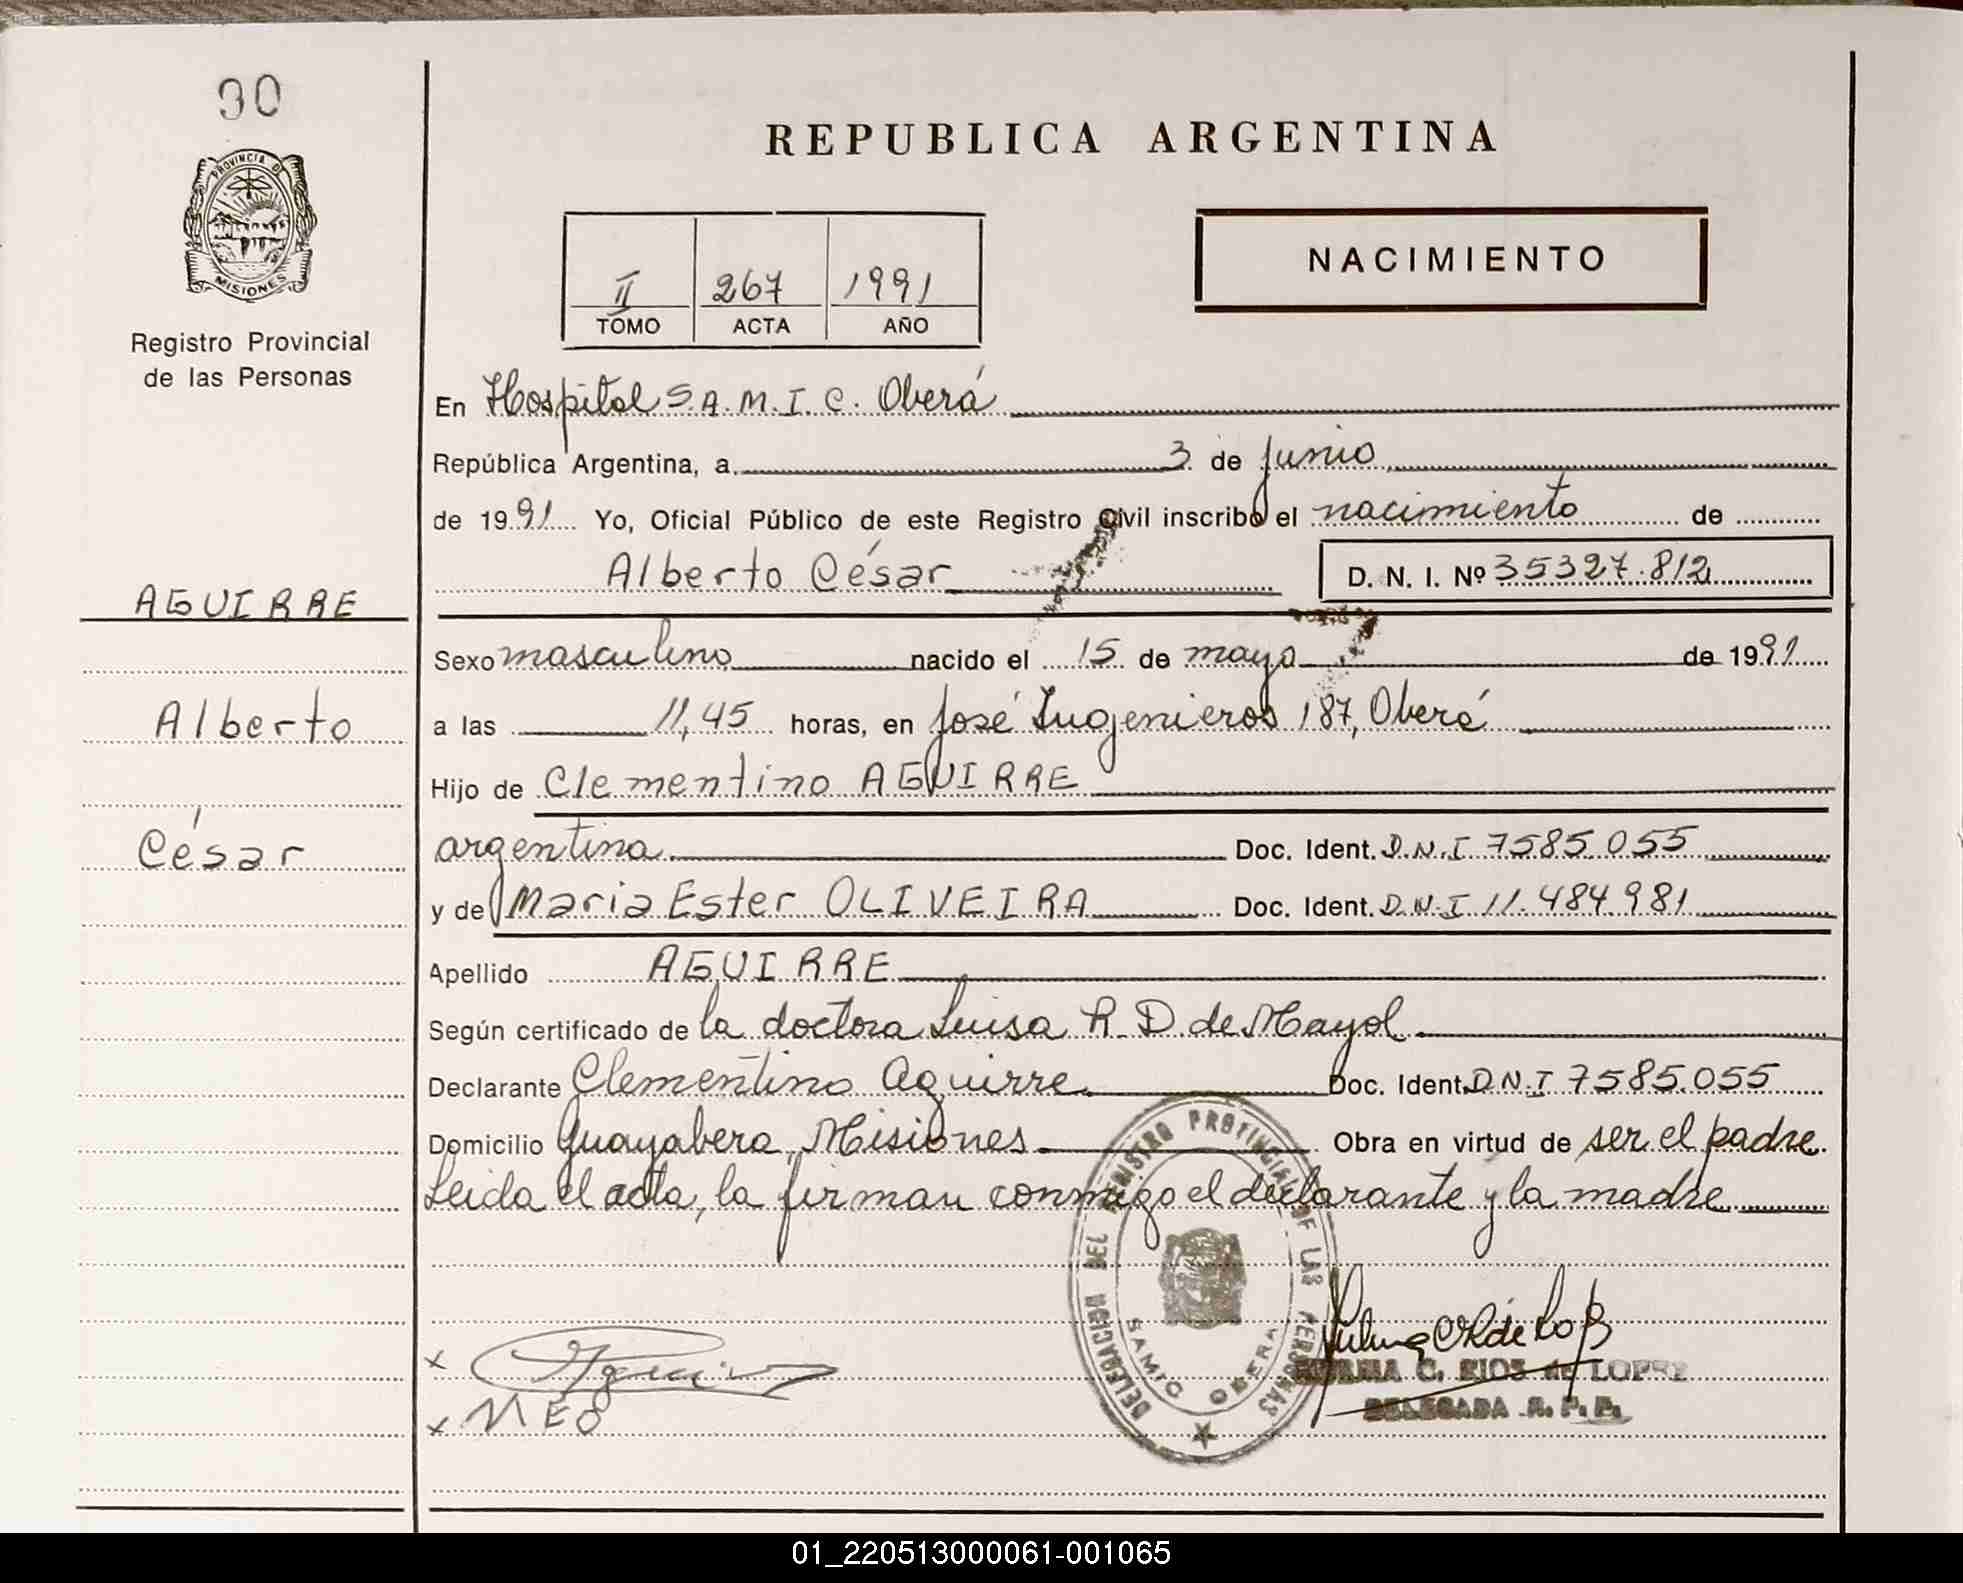 90
PROVINCIA D
MISIONES
Registro Provincial
de las Personas
AGUIRRE
Alberto
César
REPUBLICA ARGENTINA
NACIMIENTO
II 267 1991
TOMO ACTA AÑO
En Hospital S.A.M.I.C. Oberá
República Argentina, a 3 de junio
de 1991 Yo, Oficial Público de este Registro Civil inscribo el nacimiento de
Alberto César D. N. I. Nº 35327.812
Sexo masculino nacido el 15 de mayo de 1991
a las 11,45 horas, en José Ingenieros 187, Oberá
Hijo de Clementino AGUIRRE
argentina Doc. Ident. D.N.I 7585.055
y de Maria Ester OLIVEIRA Doc. Ident. D.N.I 11.484.981
Apellido AGUIRRE
Según certificado de la doctora Luisa R. D. de Mayol
Declarante Clementino Aguirre Doc. Ident. D.N.I 7585.055
Domicilio Guayabera, Misiones Obra en virtud de ser el padre.
Leida el acta, la firman conmigo el declarante y la madre
DELEGACION DEL REGISTRO PROVINCIAL DE LAS PERSONAS
SAMIC OBERA
x
x MEO
C. RIOS de LOPEZ
DELEGADA R. P. P.
01_220513000061-001065